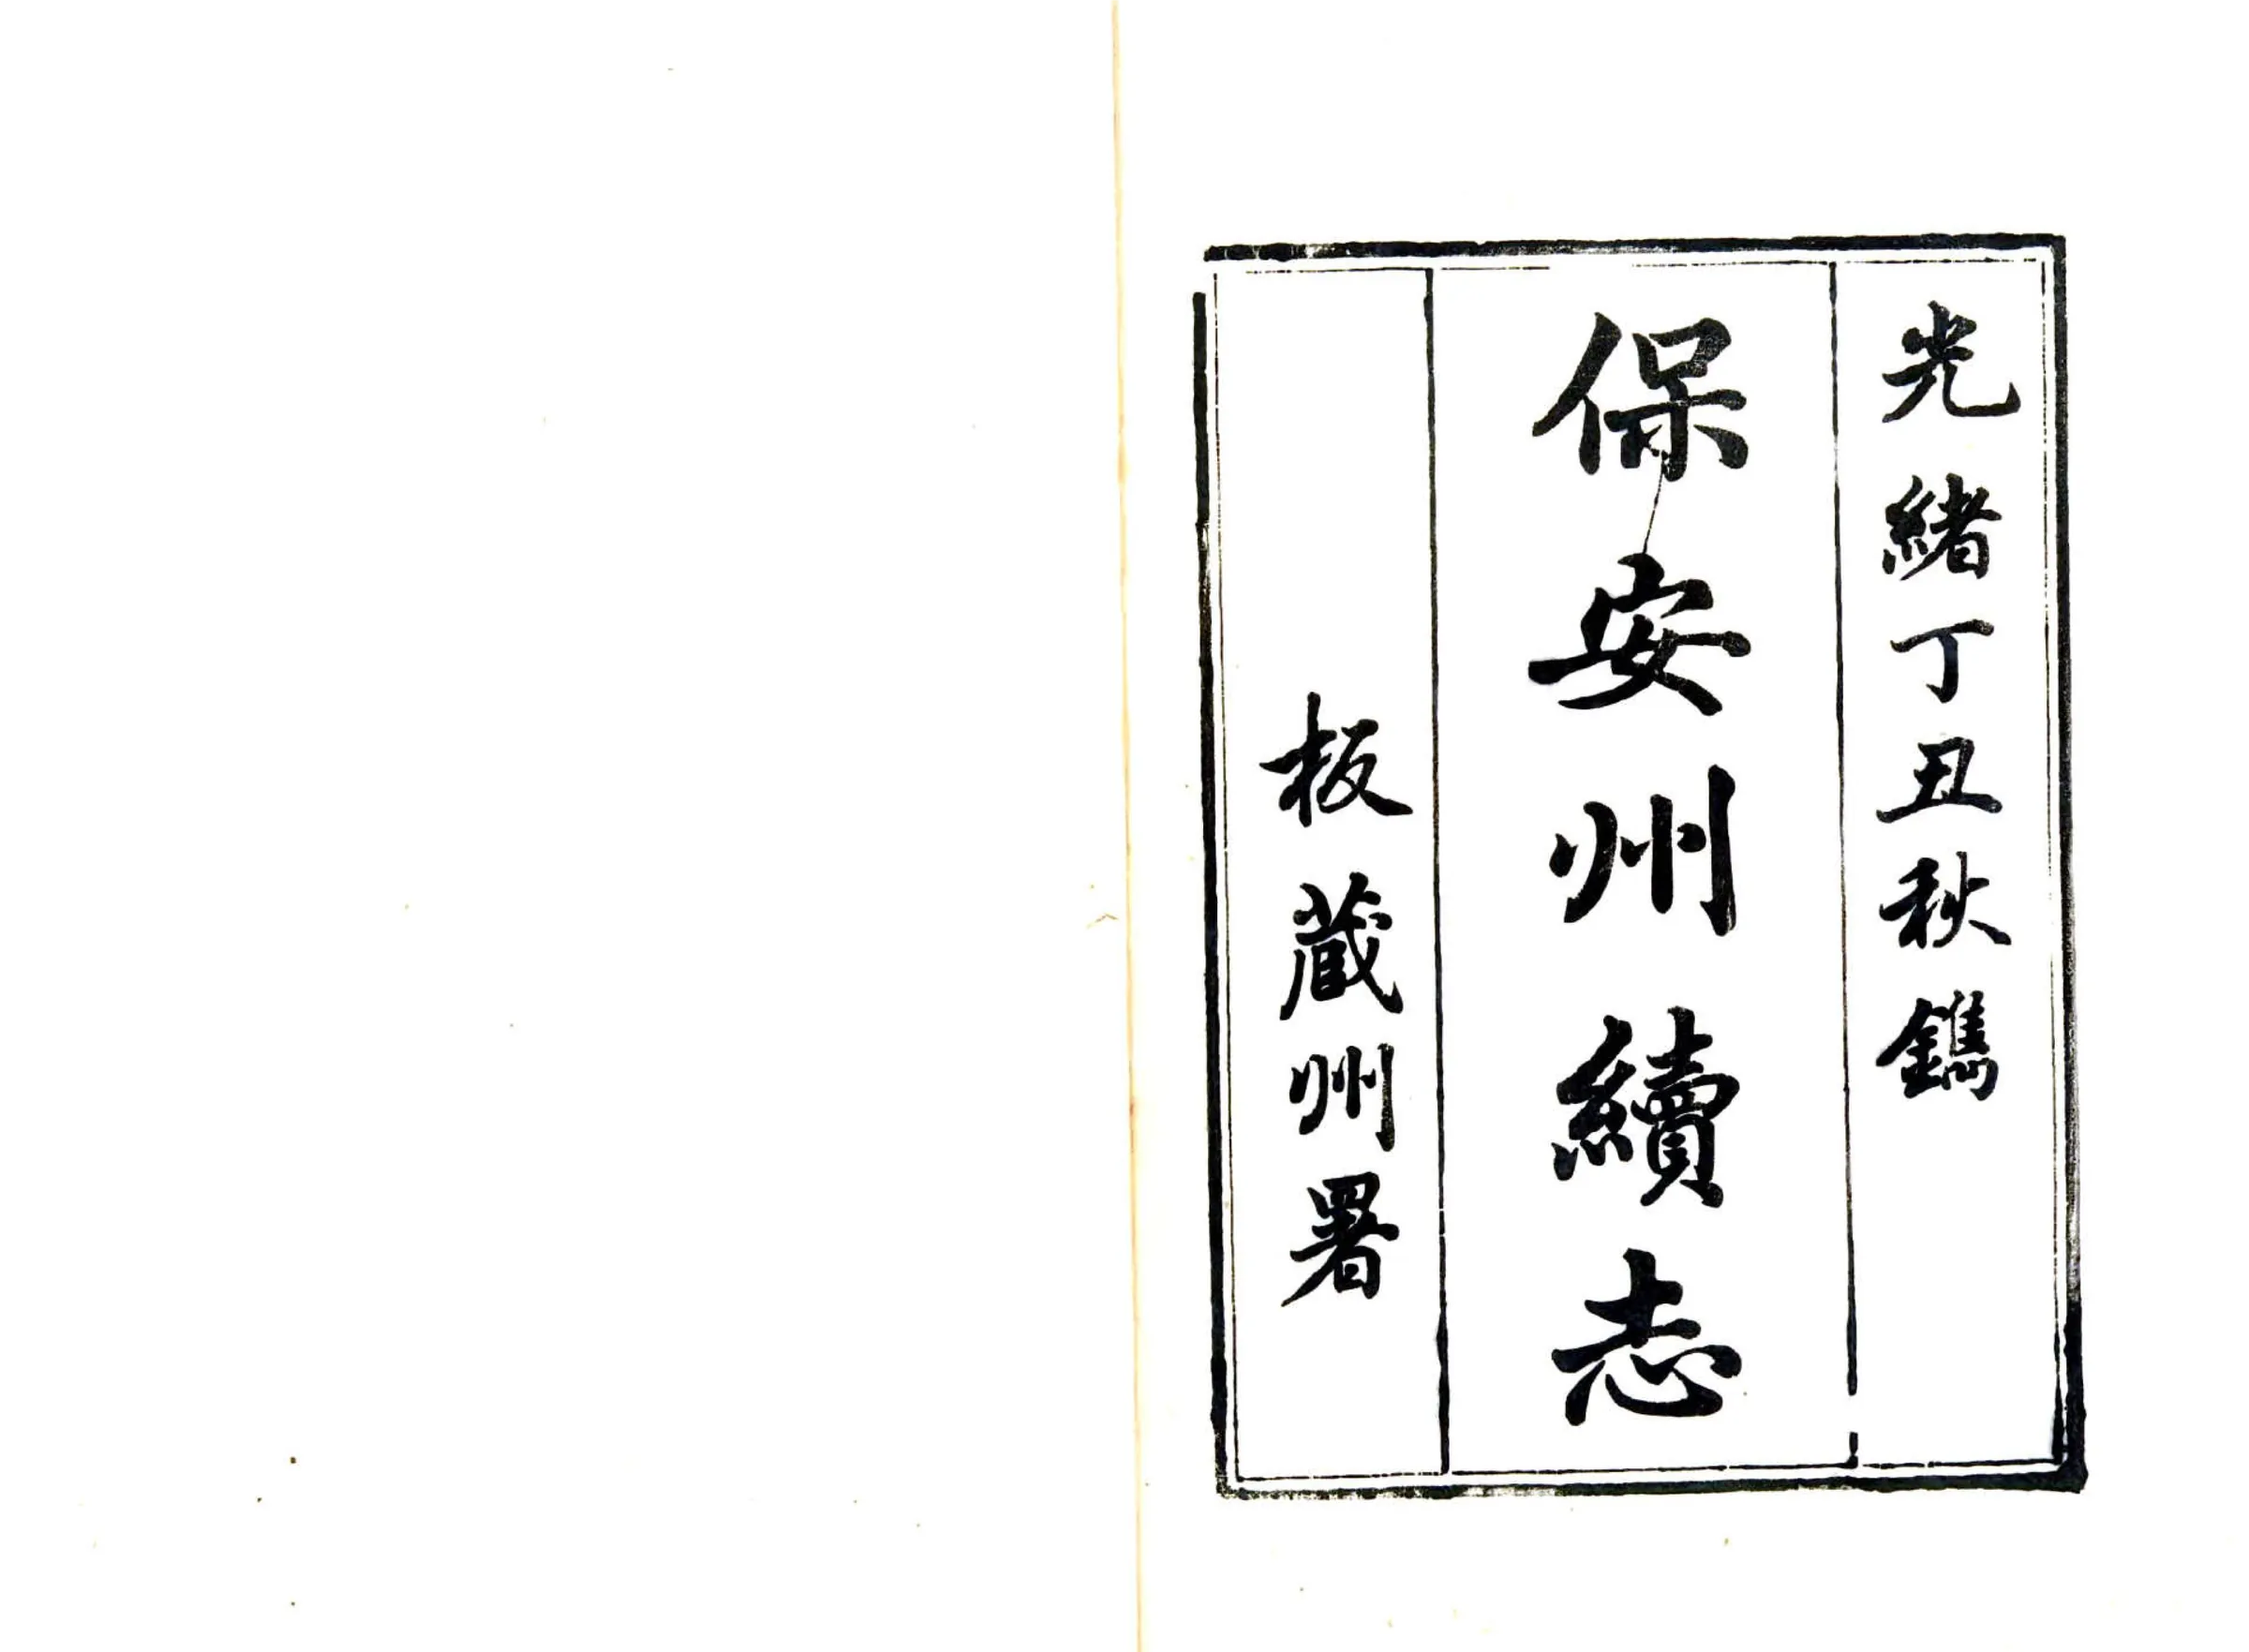 光緒丁丑秋鐫
保安州續志
板藏州署